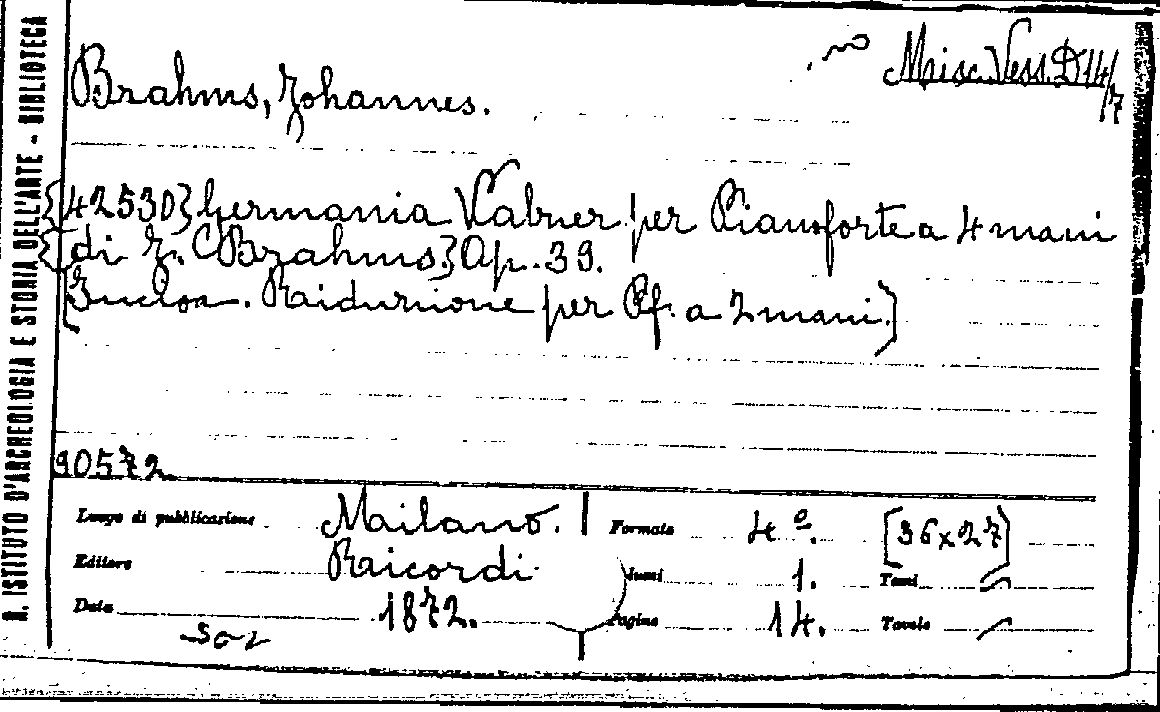 R. ISTITUTO D'ARCHEOLOGIA E STORIA DELL'ARTE - BIBLIOTECA
Misc. Vess. D 14/7
Brahms, Johannes.
{42530} Germania Valzer per Pianoforte a 4 mani
{di J. Brahms.} Op. 39.
[ . Riduzione per Pf. a 2 mani.]
90572
Luogo di pubblicazione Milano. Formato 4º. [36x27]
Editore Ricordi. Tomi
Data 1872. Pagine 14. Tavole